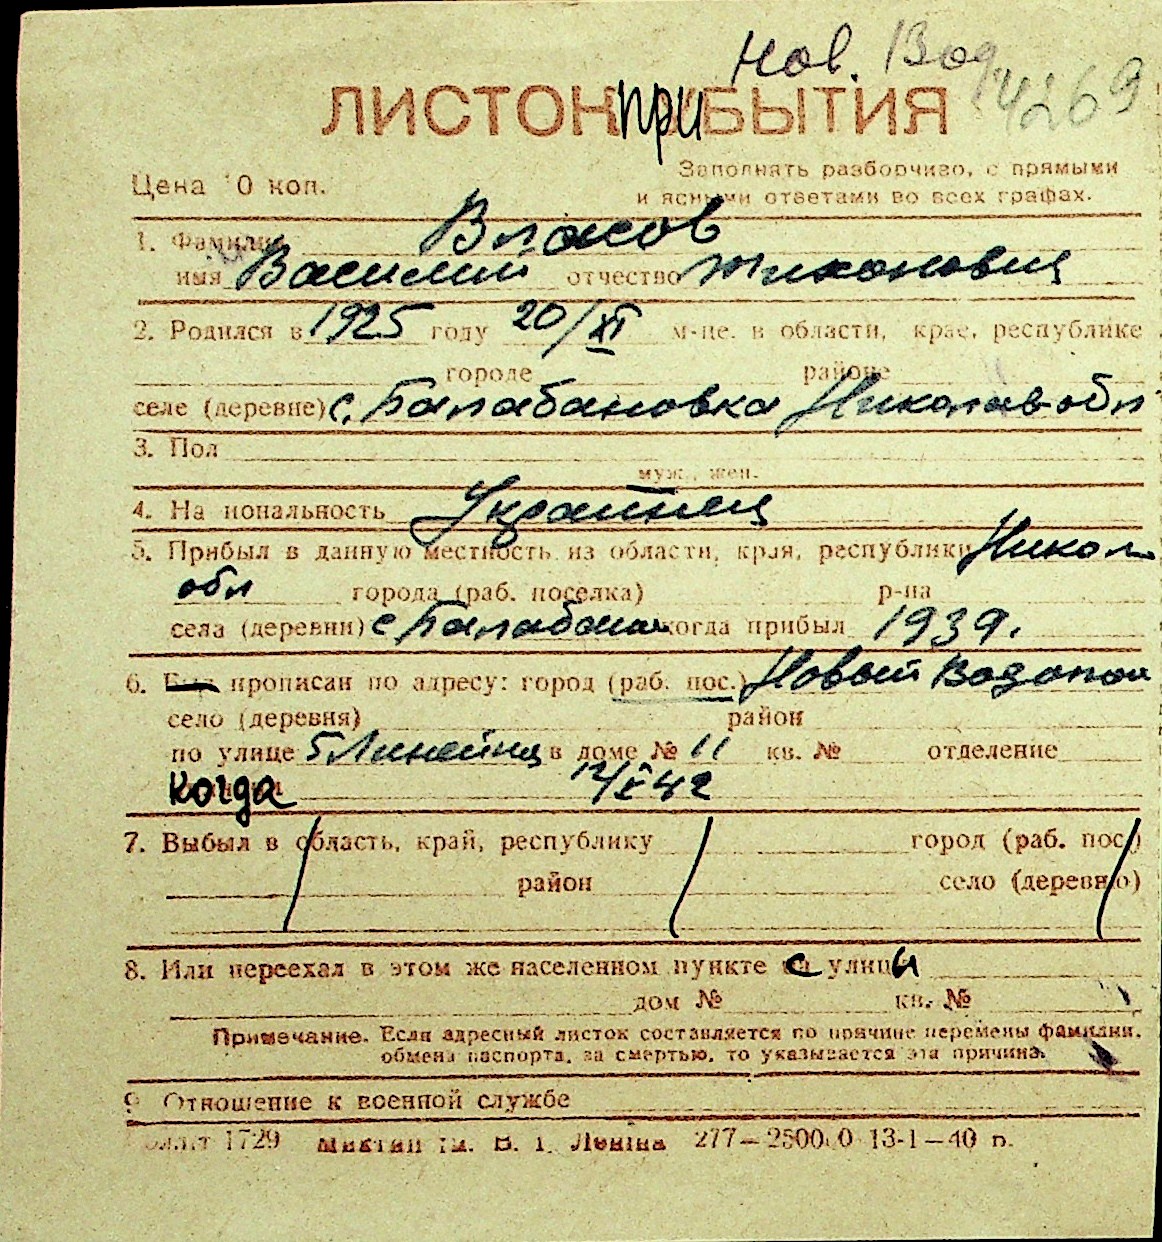 Нов. Вод
4269
ЛИСТОК приБЫТИЯ
Цена 10 коп.
Заполнять разборчиво, с прямыми
и ясными ответами во всех графах.
1. Фамилия Власов
имя Василий отчество Тихонович
2. Родился в 1925 году 20/XI м-це. в области, крае, республике
городе районе
селе (деревне) с. Балабановка Николав обл
3. Пол
муж., жен.
4. Национальность Украинец
5. Прибыл в данную местность из области, края, республики Никол
обл города (раб. поселка) р-на
села (деревни) с Балабан когда прибыл 1939.
6. Был прописан по адресу: город (раб. пос.) Новый Водопой
село (деревня) район
по улице 5 Линейна в доме № 11 кв. № отделение
когда 12/X 42
7. Выбыл в область, край, республику город (раб. пос.)
район село (деревню)
8. Или переехал в этом же населенном пункте с улицы
дом № кв. №
Примечание. Если адресный листок составляется по причине перемены фамилии,
обмена паспорта, за смертью, то указывается эта причина.
9 Отношение к военной службе
1729 Миктип ім. В. І. Леніна 277—25000 13-1—40 р.